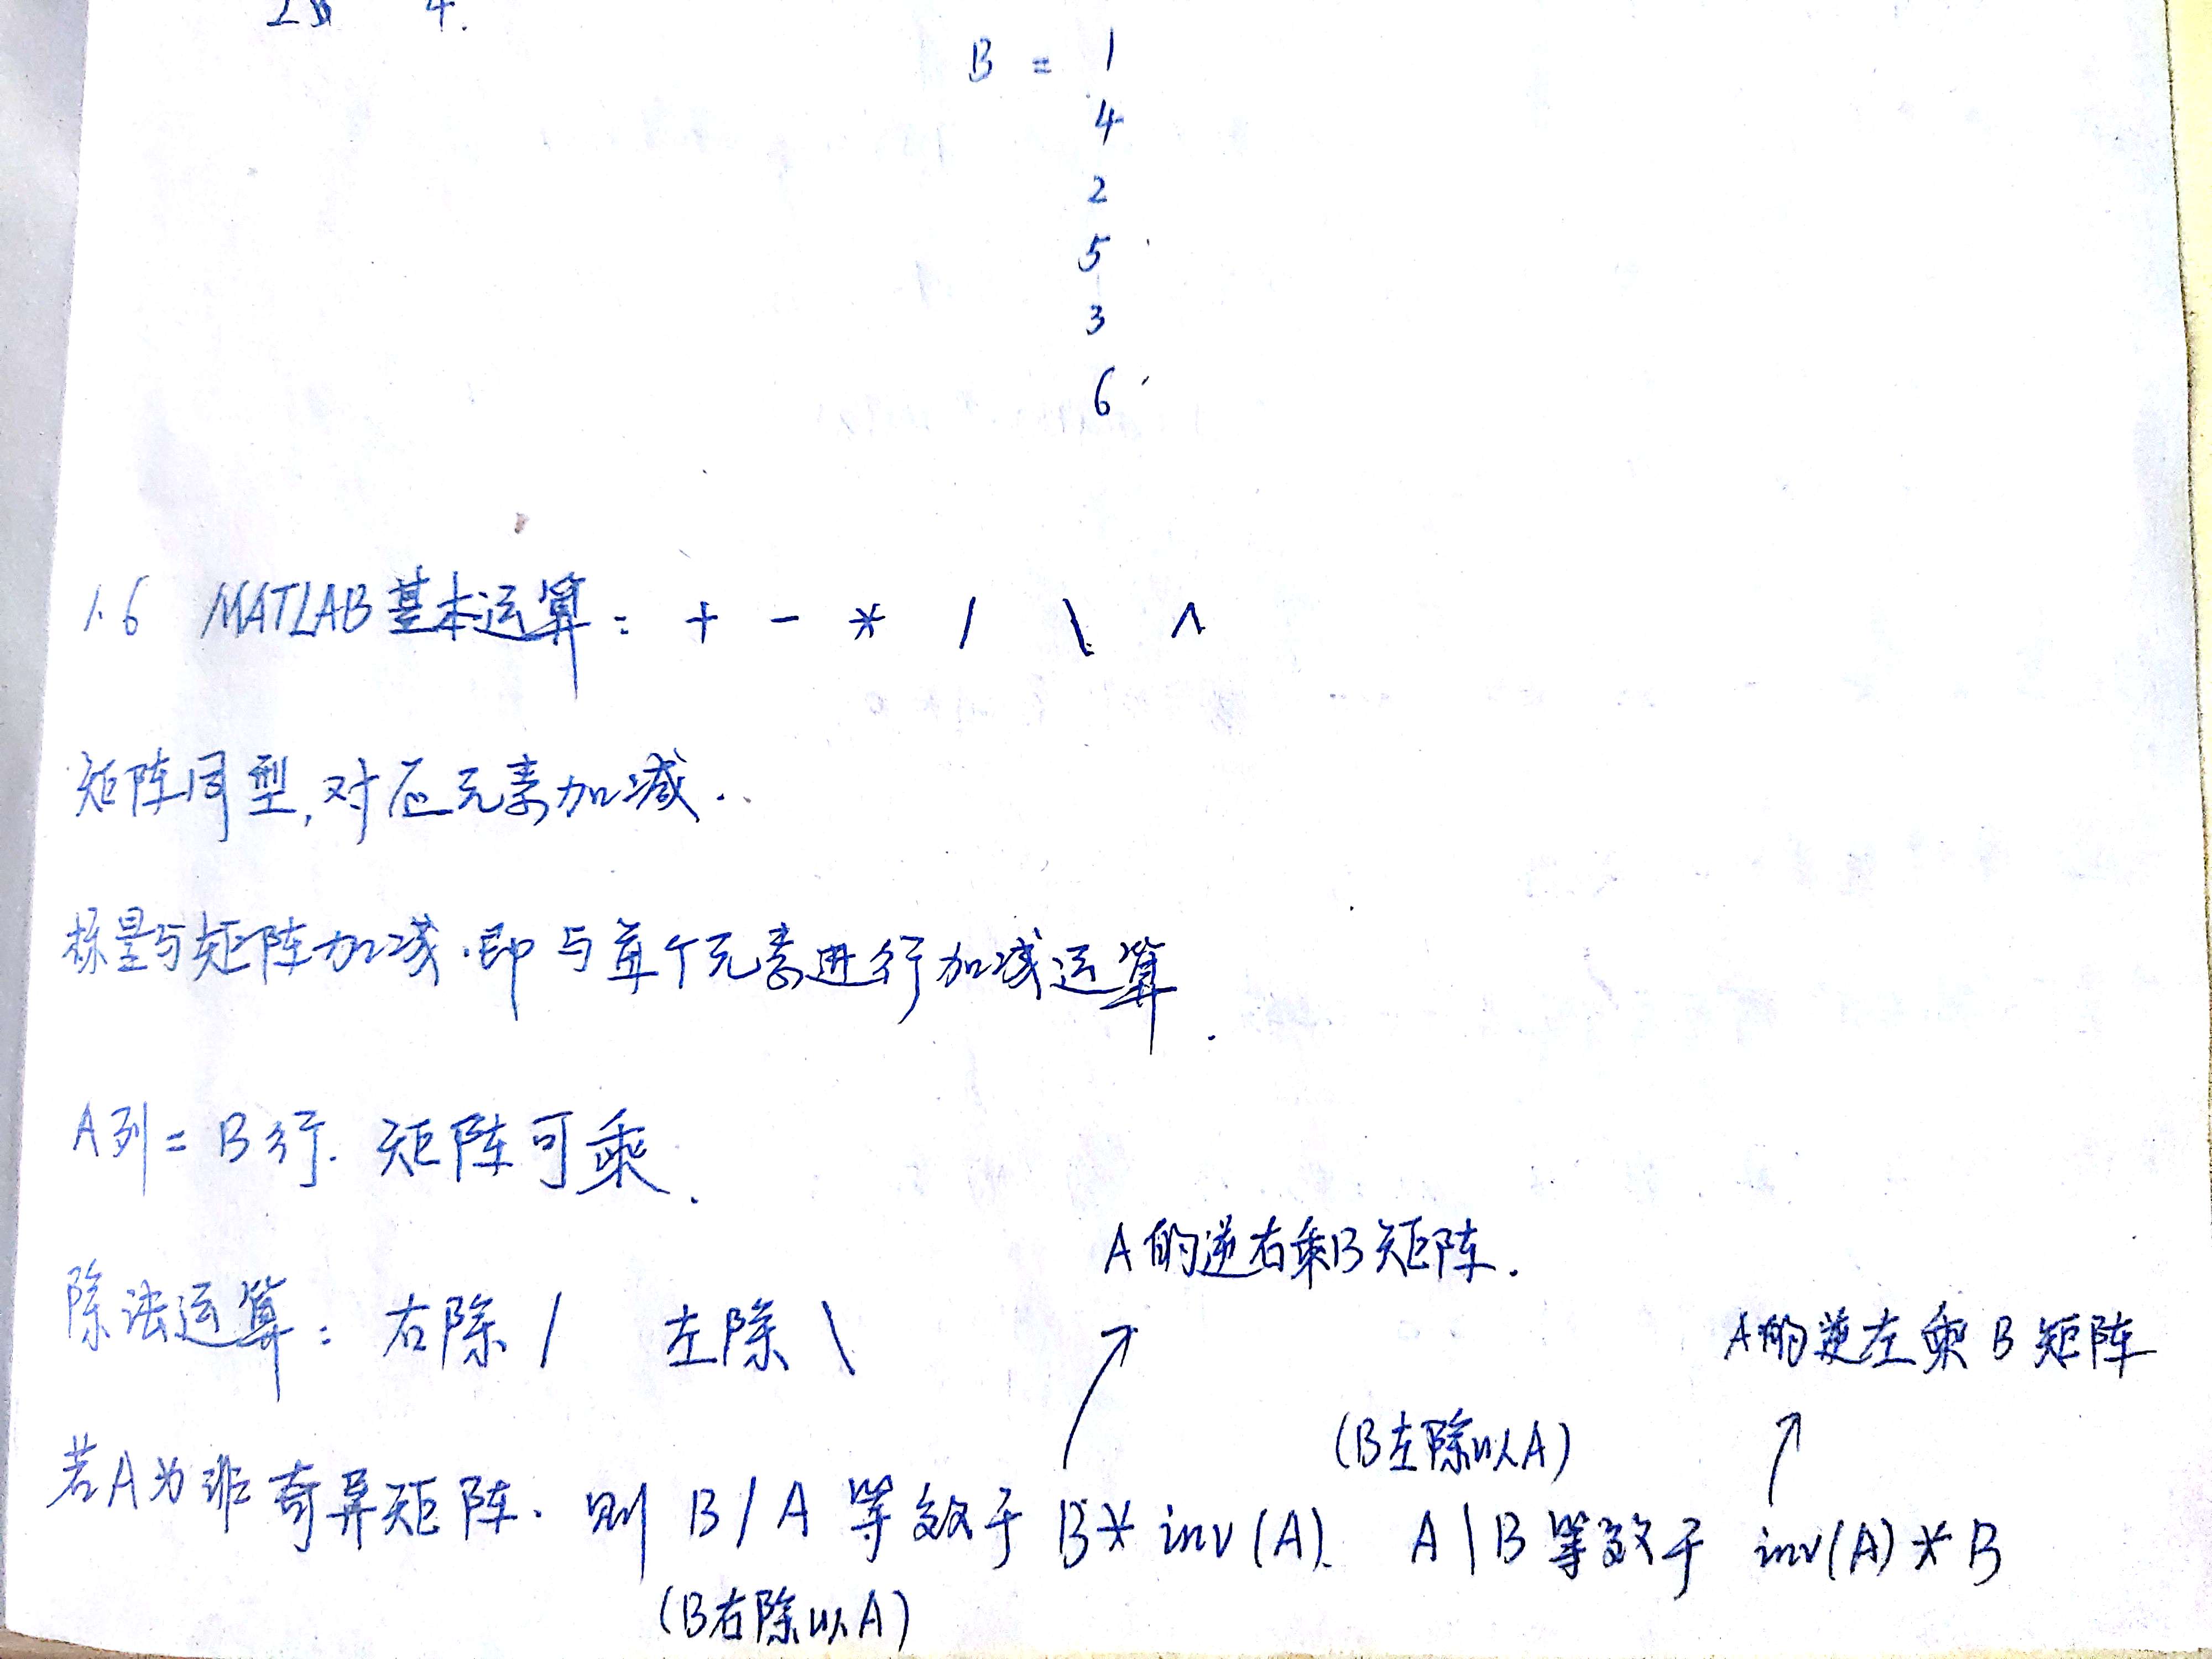 4.
B = 1
4
2
5
3
6
1.6 MATLAB基本运算: + - * / \ ^
矩阵同型,对应元素加减.
标量与矩阵加减.即与每个元素进行加减运算.
A列=B行. 矩阵可乘.
A的逆右乘B矩阵.
除法运算: 右除 / 左除 \
A的逆左乘B矩阵
(B左除以A)
若A为非奇异矩阵. 则 B/A 等效于 B*inv(A). A\B 等效于 inv(A)*B
(B右除以A)